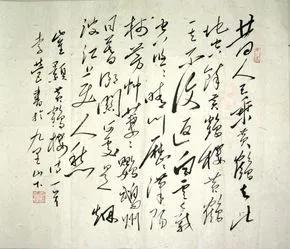 昔人已乘黄鹤去此
地空余黄鹤楼黄鹤
一去不复返白云千载
空悠悠晴川历历汉阳
树芳草萋萋鹦鹉州
日暮乡关何处是烟
波江上使人愁
崔颢黄鹤楼诗一首
书于九里山下